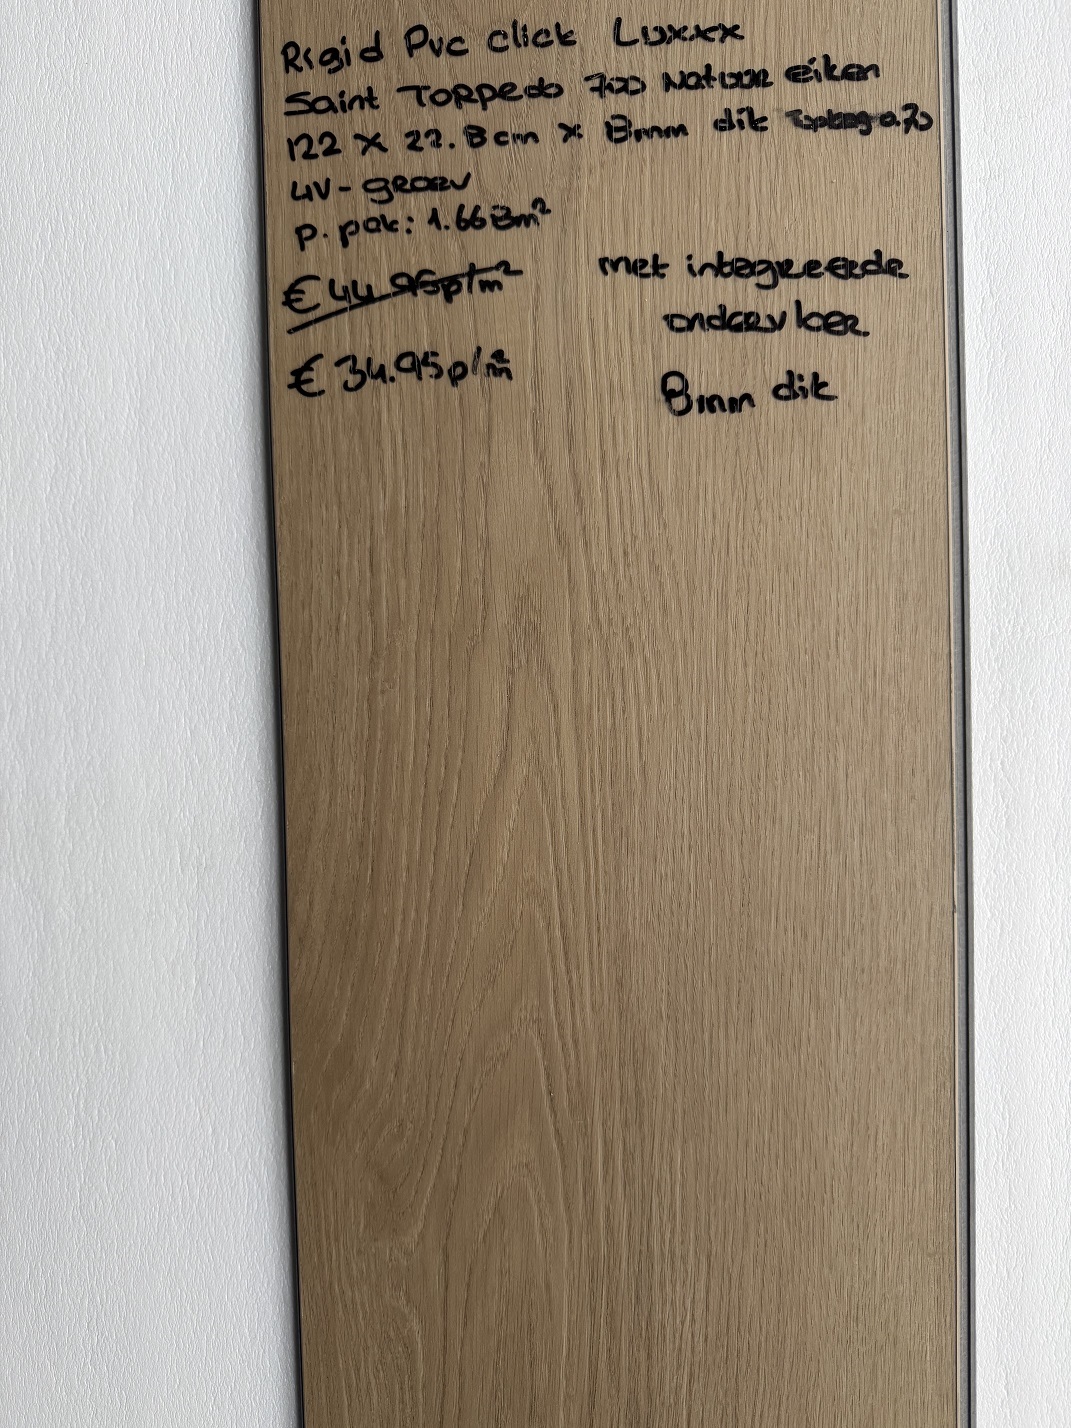 Rigid Pvc click Luxxx
Saint Torpedo 700 Natuur eiken
122 x 22.8 cm x 8mm dik Toplaag 0.70
4V-groev
p. pak: 1.668m²
€ 44.95p/m²
met integreerde
ondervloer
€ 34.95p/m²
8mm dik